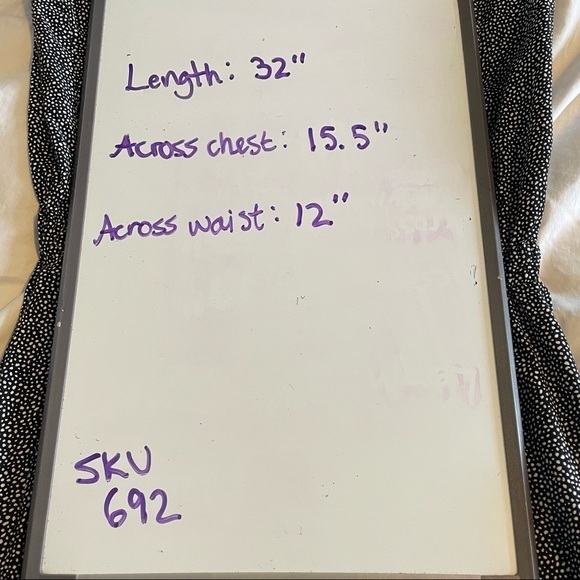 Length: 32"
Across chest: 15.5"
Across waist: 12"
SKU
692